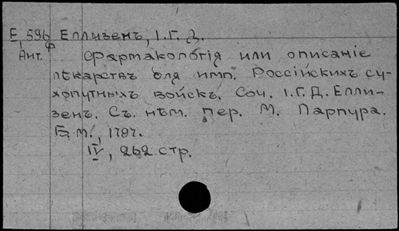 Е 596 Еллизенъ, І.Г.Д.
ф
Ант. Фармакологія или описаніе
лѣкарствъ для имп. Россійскихъ су-
хопутныхъ войскъ. Соч. І.Г.Д. Елли-
зенъ. Съ нѣм. пер. М. Парпура.
Б.М., 1797.
IV, 262 стр.